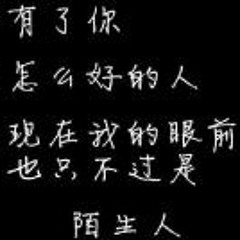 有了你
怎么好的人
现在我的眼前
也只不过是
陌生人